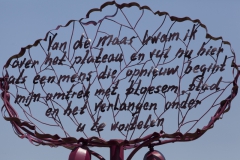 Van de Maas kwam ik
over het plateau en vijf nu hier
als een mens die opnieuw begint
mijn omtrek met bloesem, blad
en het verlangen onder
u te wortelen